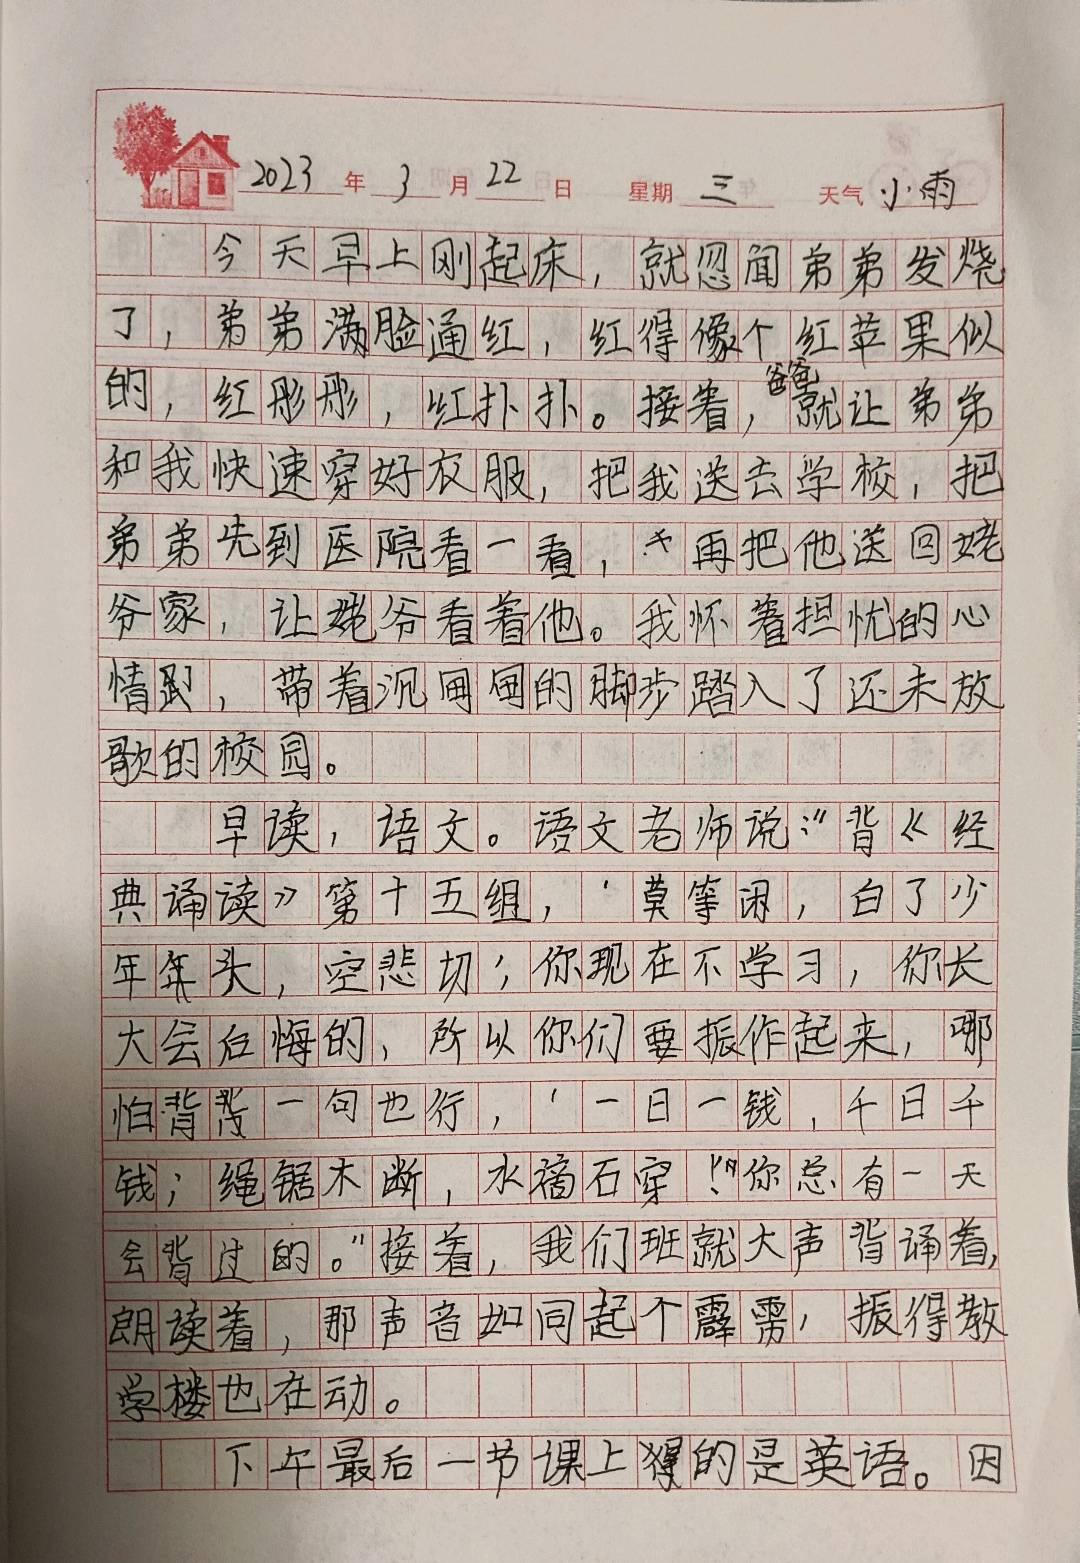 2023年3月22日 星期三 天气小雨
今天早上刚起床，就忽闻弟弟发烧
了，弟弟满脸通红，红得像个红苹果似
的，红彤彤，红扑扑。接着，爸爸就让弟弟
和我快速穿好衣服，把我送去学校，把
弟弟先到医院看一看，再把他送回姥
爷家，让姥爷看着他。我怀着担忧的心
情，带着沉甸甸的脚步踏入了还未放
歌的校园。
早读，语文。语文老师说：“背《经
典诵读》第十五组，‘莫等闲，白了少
年年头，空悲切’；你现在不学习，你长
大会后悔的，所以你们要振作起来，哪
怕背背一句也行，‘一日一钱，千日千
钱；绳锯木断，水滴石穿！’”你总有一天
会背过的。”接着，我们班就大声背诵着，
朗读着，那声音如同起个霹雳，振得教
学楼也在动。
下午最后一节课上的是英语。因